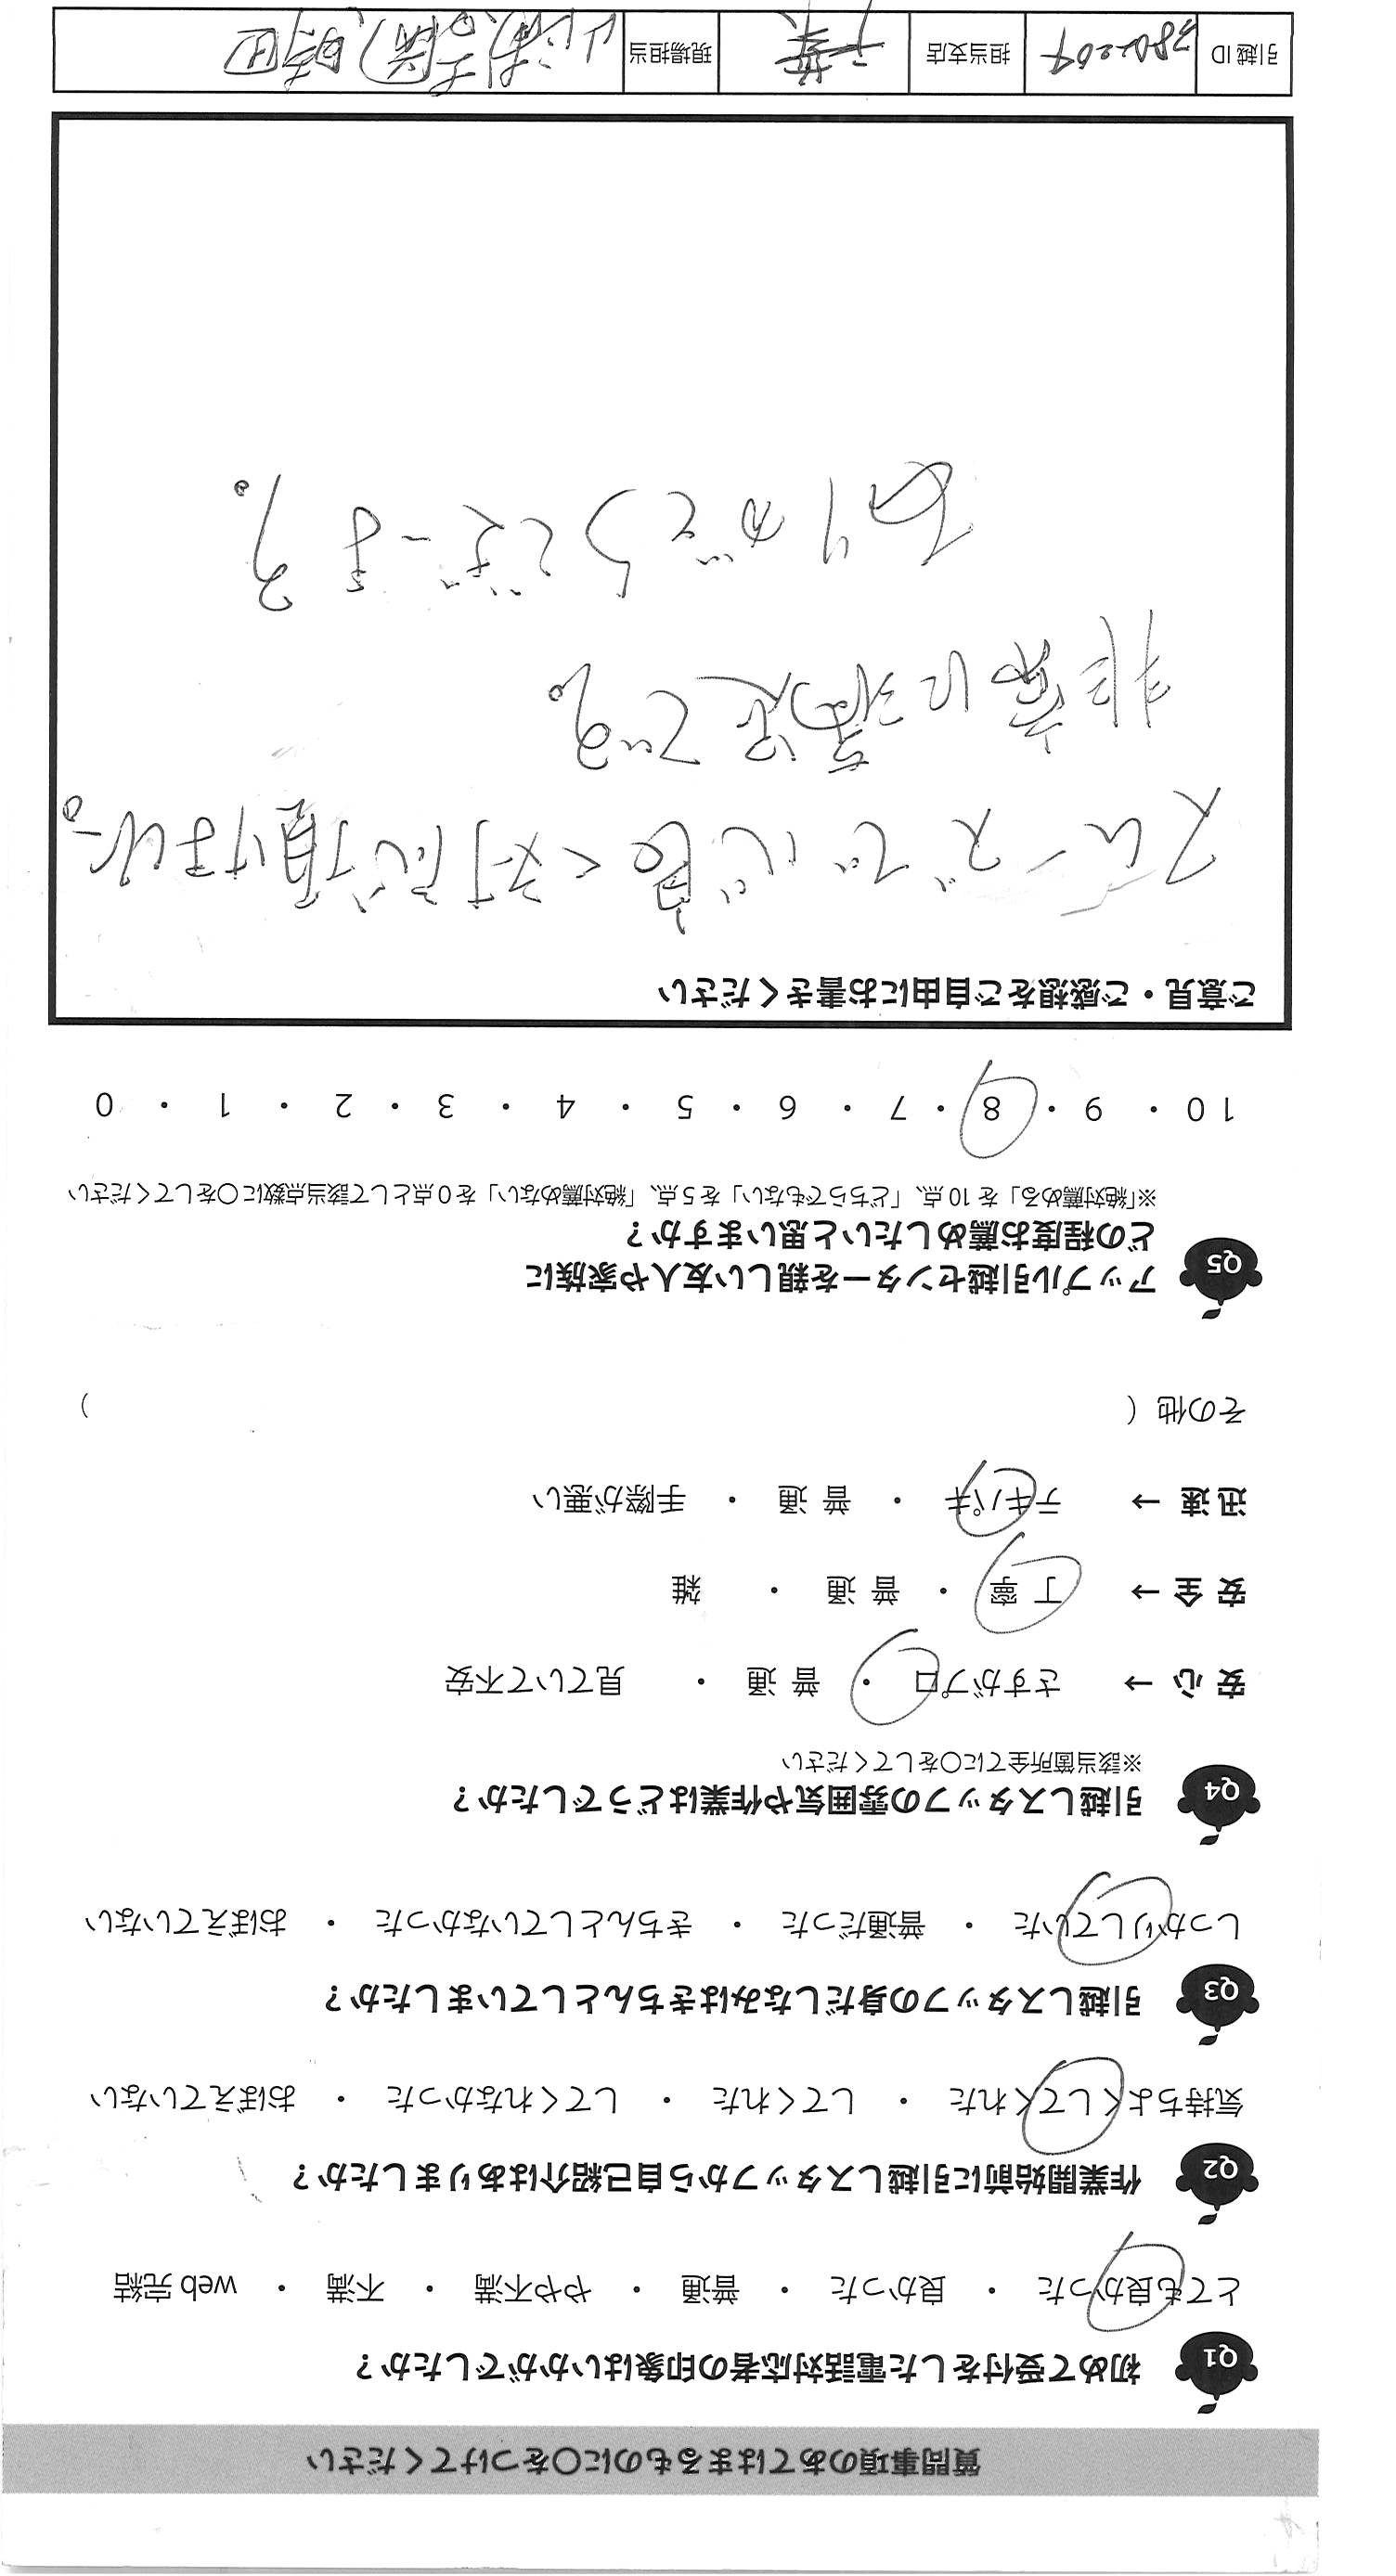 質問事項のあてはまるものに〇をつけてください
Q1 初めて受付をした電話対応者の印象はいかがでしたか？
とても良かった ・ 良かった ・ 普通 ・ やや不満 ・ 不満 ・ web 完結
Q2 作業開始前に引越しスタッフから自己紹介はありましたか？
気持ちよくしてくれた ・ してくれた ・ してくれなかった ・ おぼえていない
Q3 引越しスタッフの身だしなみはきちんとしていましたか？
しっかりしていた ・ 普通だった ・ きちんとしていなかった ・ おぼえていない
Q4 引越しスタッフの雰囲気や作業はどうでしたか？
※該当箇所全てに〇をしてください
安 心 → さすがプロ ・ 普 通 ・ 見ていて不安
安 全 → 丁 寧 ・ 普 通 ・ 雑
迅 速 → テキパキ ・ 普 通 ・ 手際が悪い
その他（ ）
Q5 アップル引越センターを親しい友人や家族に
どの程度お薦めしたいと思いますか？
※「絶対薦める」を 10 点、「どちらでもない」を 5 点、「絶対薦めない」を 0 点として該当点数に〇をしてください
10 ・ 9 ・ 8 ・ 7 ・ 6 ・ 5 ・ 4 ・ 3 ・ 2 ・ 1 ・ 0
ご意見・ご感想をご自由にお書きください
スムーズで心良く対応頂けました。
非常に満足です。
ありがとうございます。
引越 ID 担当支店 千葉 現場担当